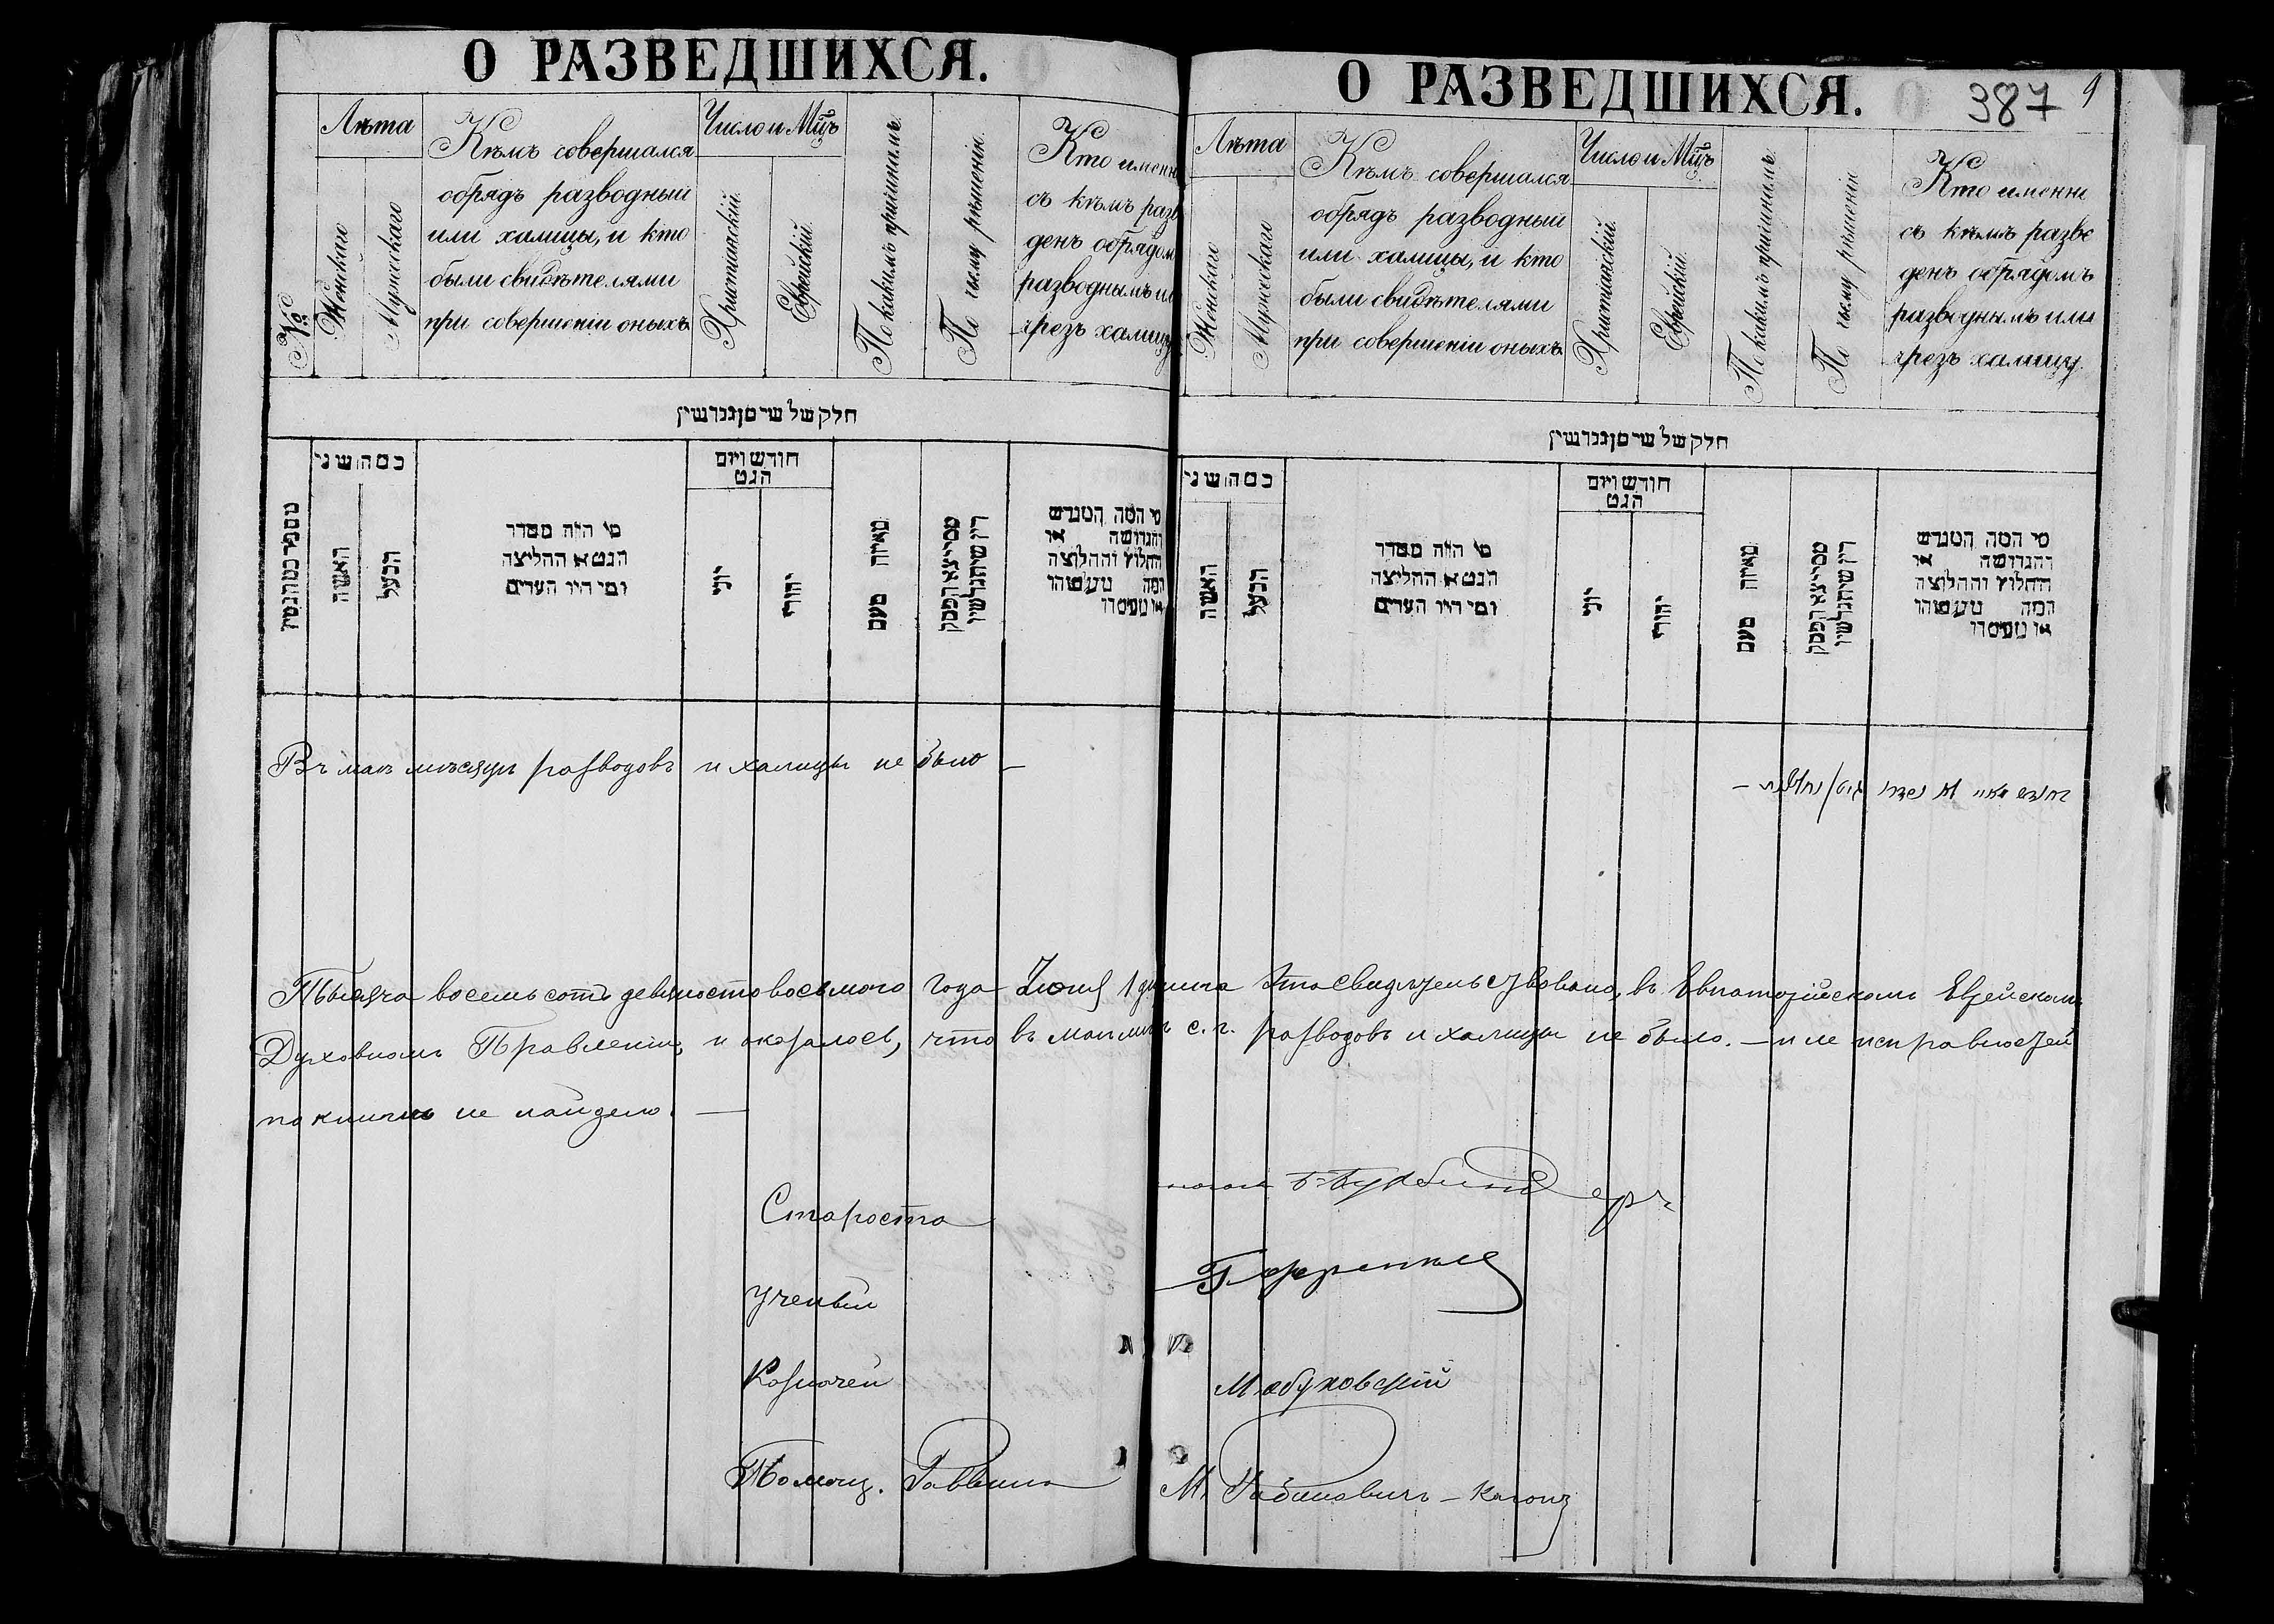 О РАЗВЕДШИХСЯ.
№
Лѣта
Женскаго
Мужескаго
Кѣмъ совершался
обрядъ разводный
или халицы, и кто
были свидѣтелями
при совершеніи оныхъ
Число и Мцъ
Христіанскій
Еврейскій
По какимъ причинамъ
По чьему рѣшенію
Кто именн
съ кѣмъ разв
денъ обрядом
разводнымъ ил
чрезъ халицу
חלק של שי מן גגרשין
כמה שני
האשה
הבעל
מי היה מסדר
הגט או החליצה
ומי היו העדים
חודש ויום
הגט
יוני
יהודי
מאיזה טעם
מי המה המגרש
והגרושה או
החלוץ והחלוצה
Въ маѣ мѣсяцѣ разводовъ и халицы не было —
О РАЗВЕДШИХСЯ.
387
9
Лѣта
Женскаго
Мужескаго
Кѣмъ совершался
обрядъ разводный
или халицы, и кто
были свидѣтелями
при совершеніи оныхъ
Число и Мцъ
Христіанскій
Еврейскій
По какимъ причинамъ
По чьему рѣшенію
Кто именн
съ кѣмъ разве
денъ обрядомъ
разводнымъ или
чрезъ халицу
חלק של שי מן גגרשין
כמה שני
האשה
הבעל
מי היה מסדר
הגט או החליצה
ומי היו העדים
חודש ויום
הגט
יוני
יהודי
מאיזה טעם
מי המה המגרש
והגרושה או
החלוץ והחלוצה
Тысяча восемьсотъ девяностовосьмого года Іюня 1 дня свидѣтельствовано, въ Евпаторійскомъ Еврейскомъ
Духовномъ Правленіи, и оказалось, что въ маѣ мцѣ с. г. разводовъ и халицы не было. — и не исправностей
по книгѣ не найдено. —
Староста
Ученый
Г. Френкель
Казначей
Помощ. Раввина
М. Рабиновичъ – Каганъ